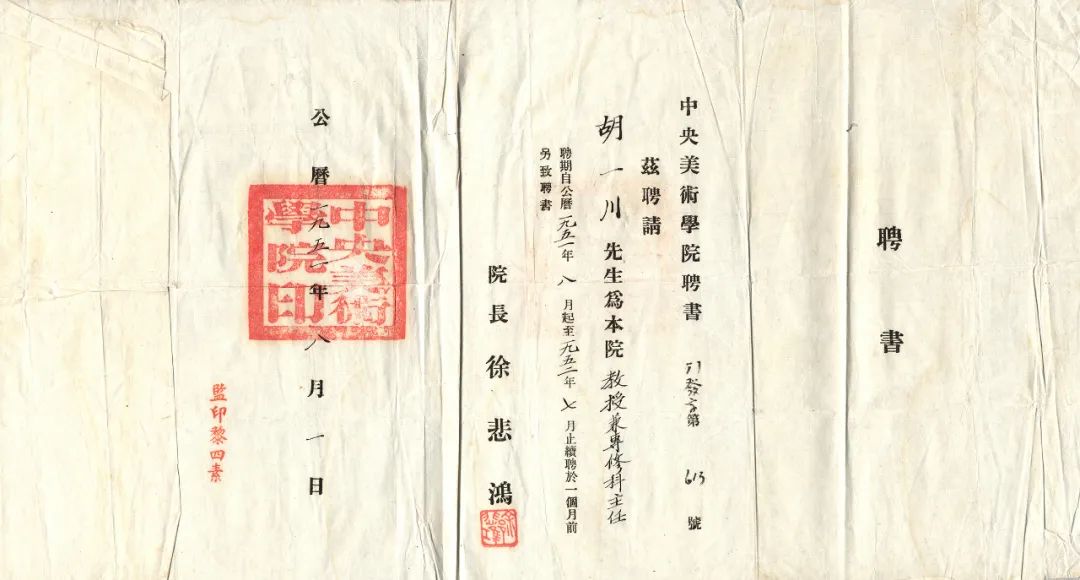 聘書
中央美術學院聘書 發字第 613 號
茲聘請
胡一川先生爲本院教授兼專修科主任
聘期自公曆一九五一年八月起至一九五二年七月止續聘於一個月前
另致聘書
院長徐悲鴻
公曆一九五一年八月一日
中央美術學院印
監印黎四素